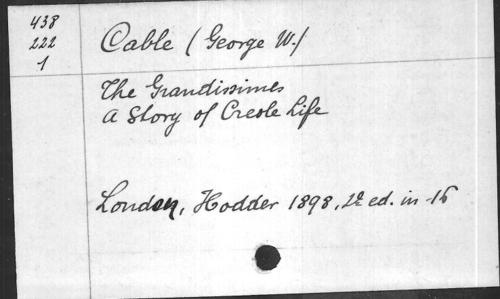 438
222
1
Cable (George W.)
The Grandissimes
A Story of Creole Life
London, Hodder 1898, 2e ed. in-16